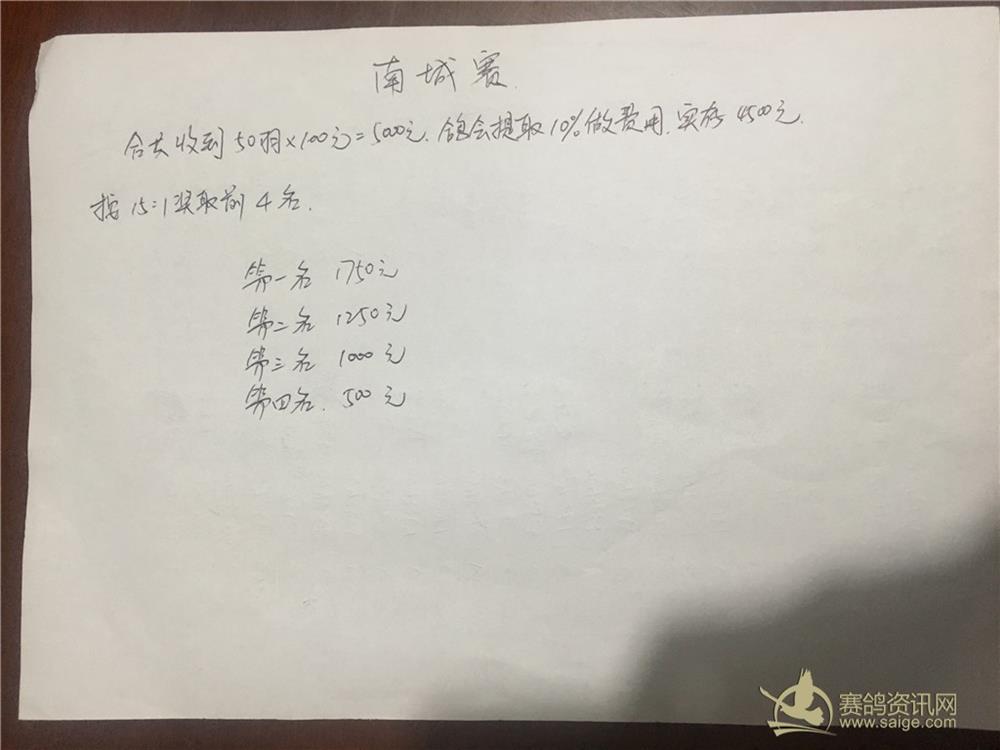 南城赛.
合共收到50羽×100元=5000元.鸽会提取10%做费用.实存4500元.
按15:1奖取前4名.
第一名 1750元
第二名 1250元
第三名 1000元
第四名. 500元
赛鸽资讯网
www.saige.com